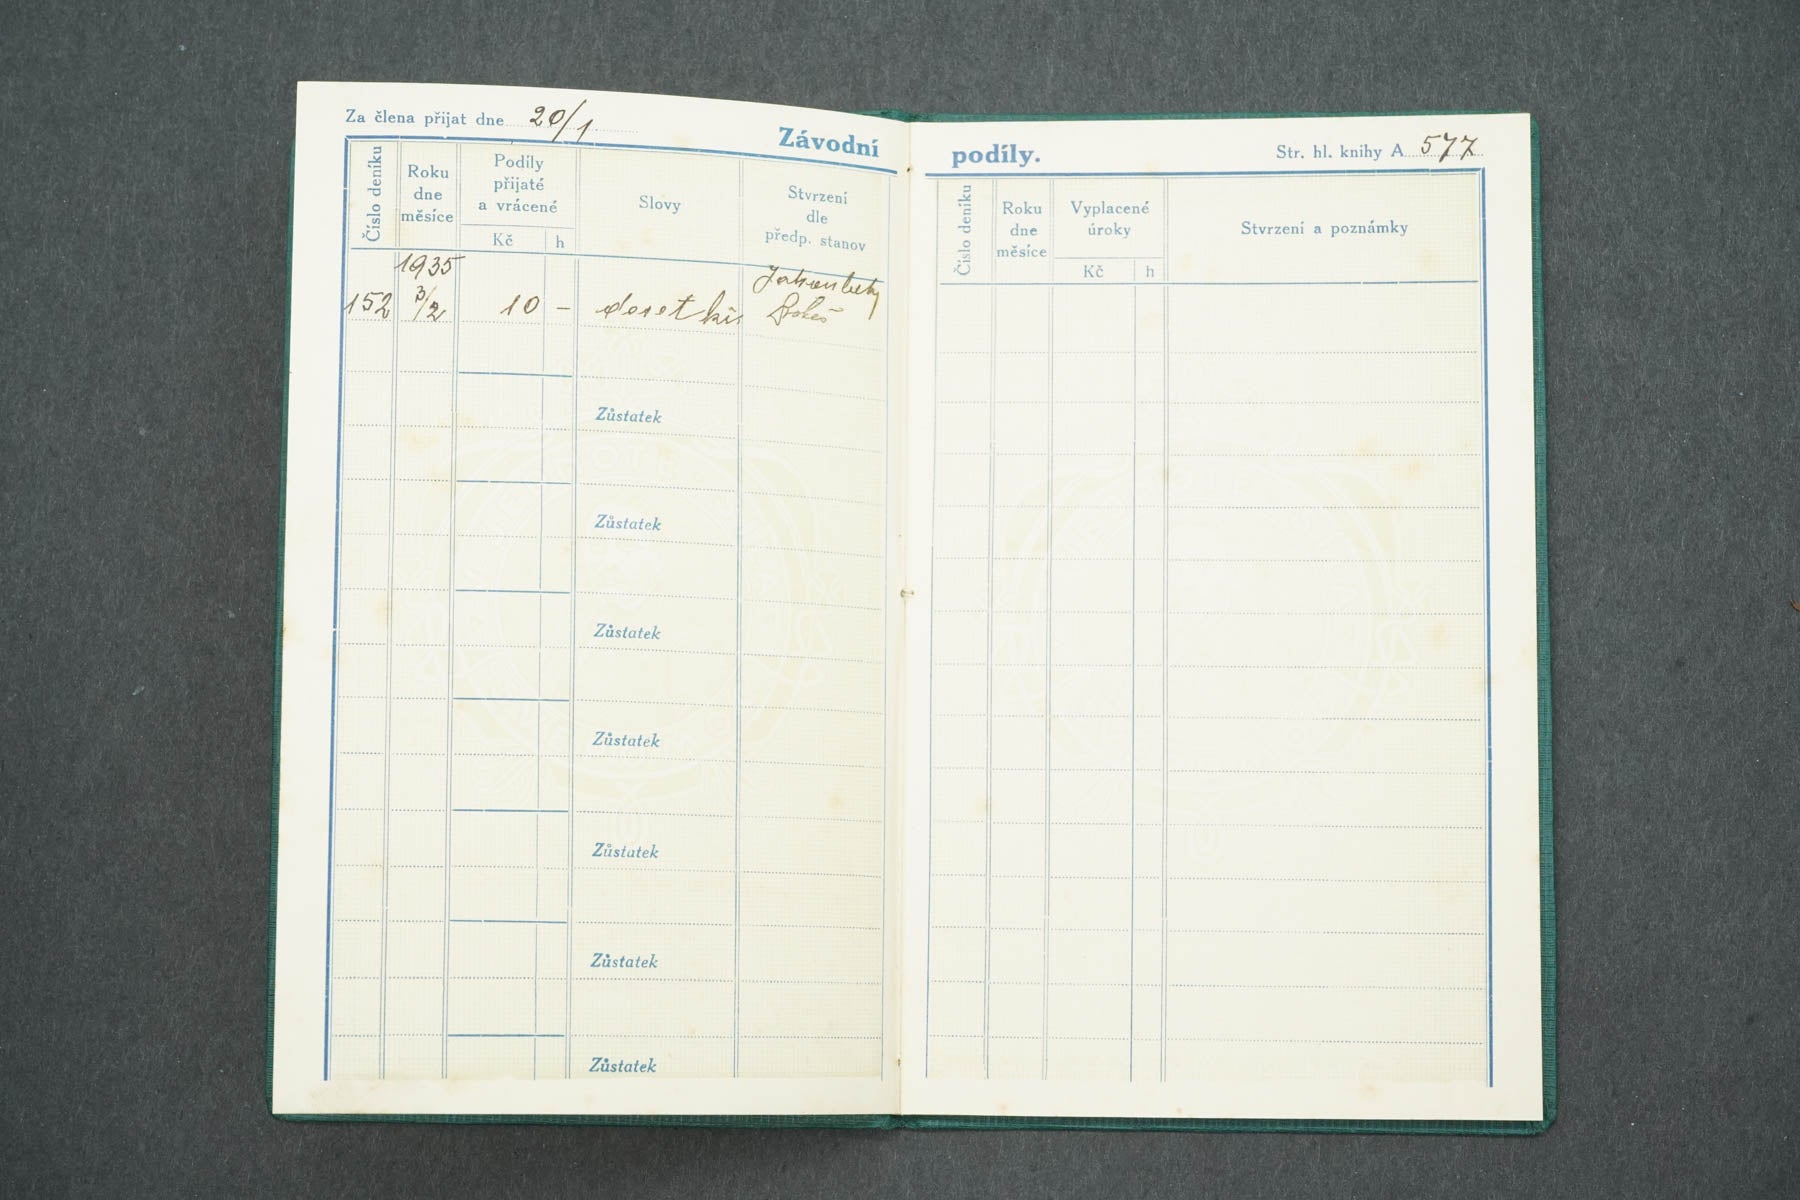 Za člena přijat dne 20/1
Závodní podíly.
Str. hl. knihy A 577
Číslo deníku
Roku
dne
měsíce
Podíly
přijaté
a vrácené
Kč h
Slovy
Stvrzení
dle
předp. stanov
1935
152 3/2 10 – deset kč
Zůstatek
Zůstatek
Zůstatek
Zůstatek
Zůstatek
Zůstatek
Zůstatek
Číslo deníku
Roku
dne
měsíce
Vyplacené
úroky
Kč h
Stvrzení a poznámky